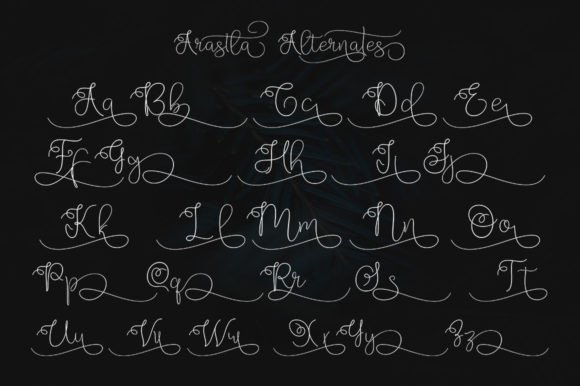 Arastla Alternates
Aa Bb Cc Dd Ee
Ff Gg Hh Ii Jj
Kk Ll Mm Nn Oo
Pp Qq Rr Ss Tt
Uu Vv Ww Xx Yy Zz